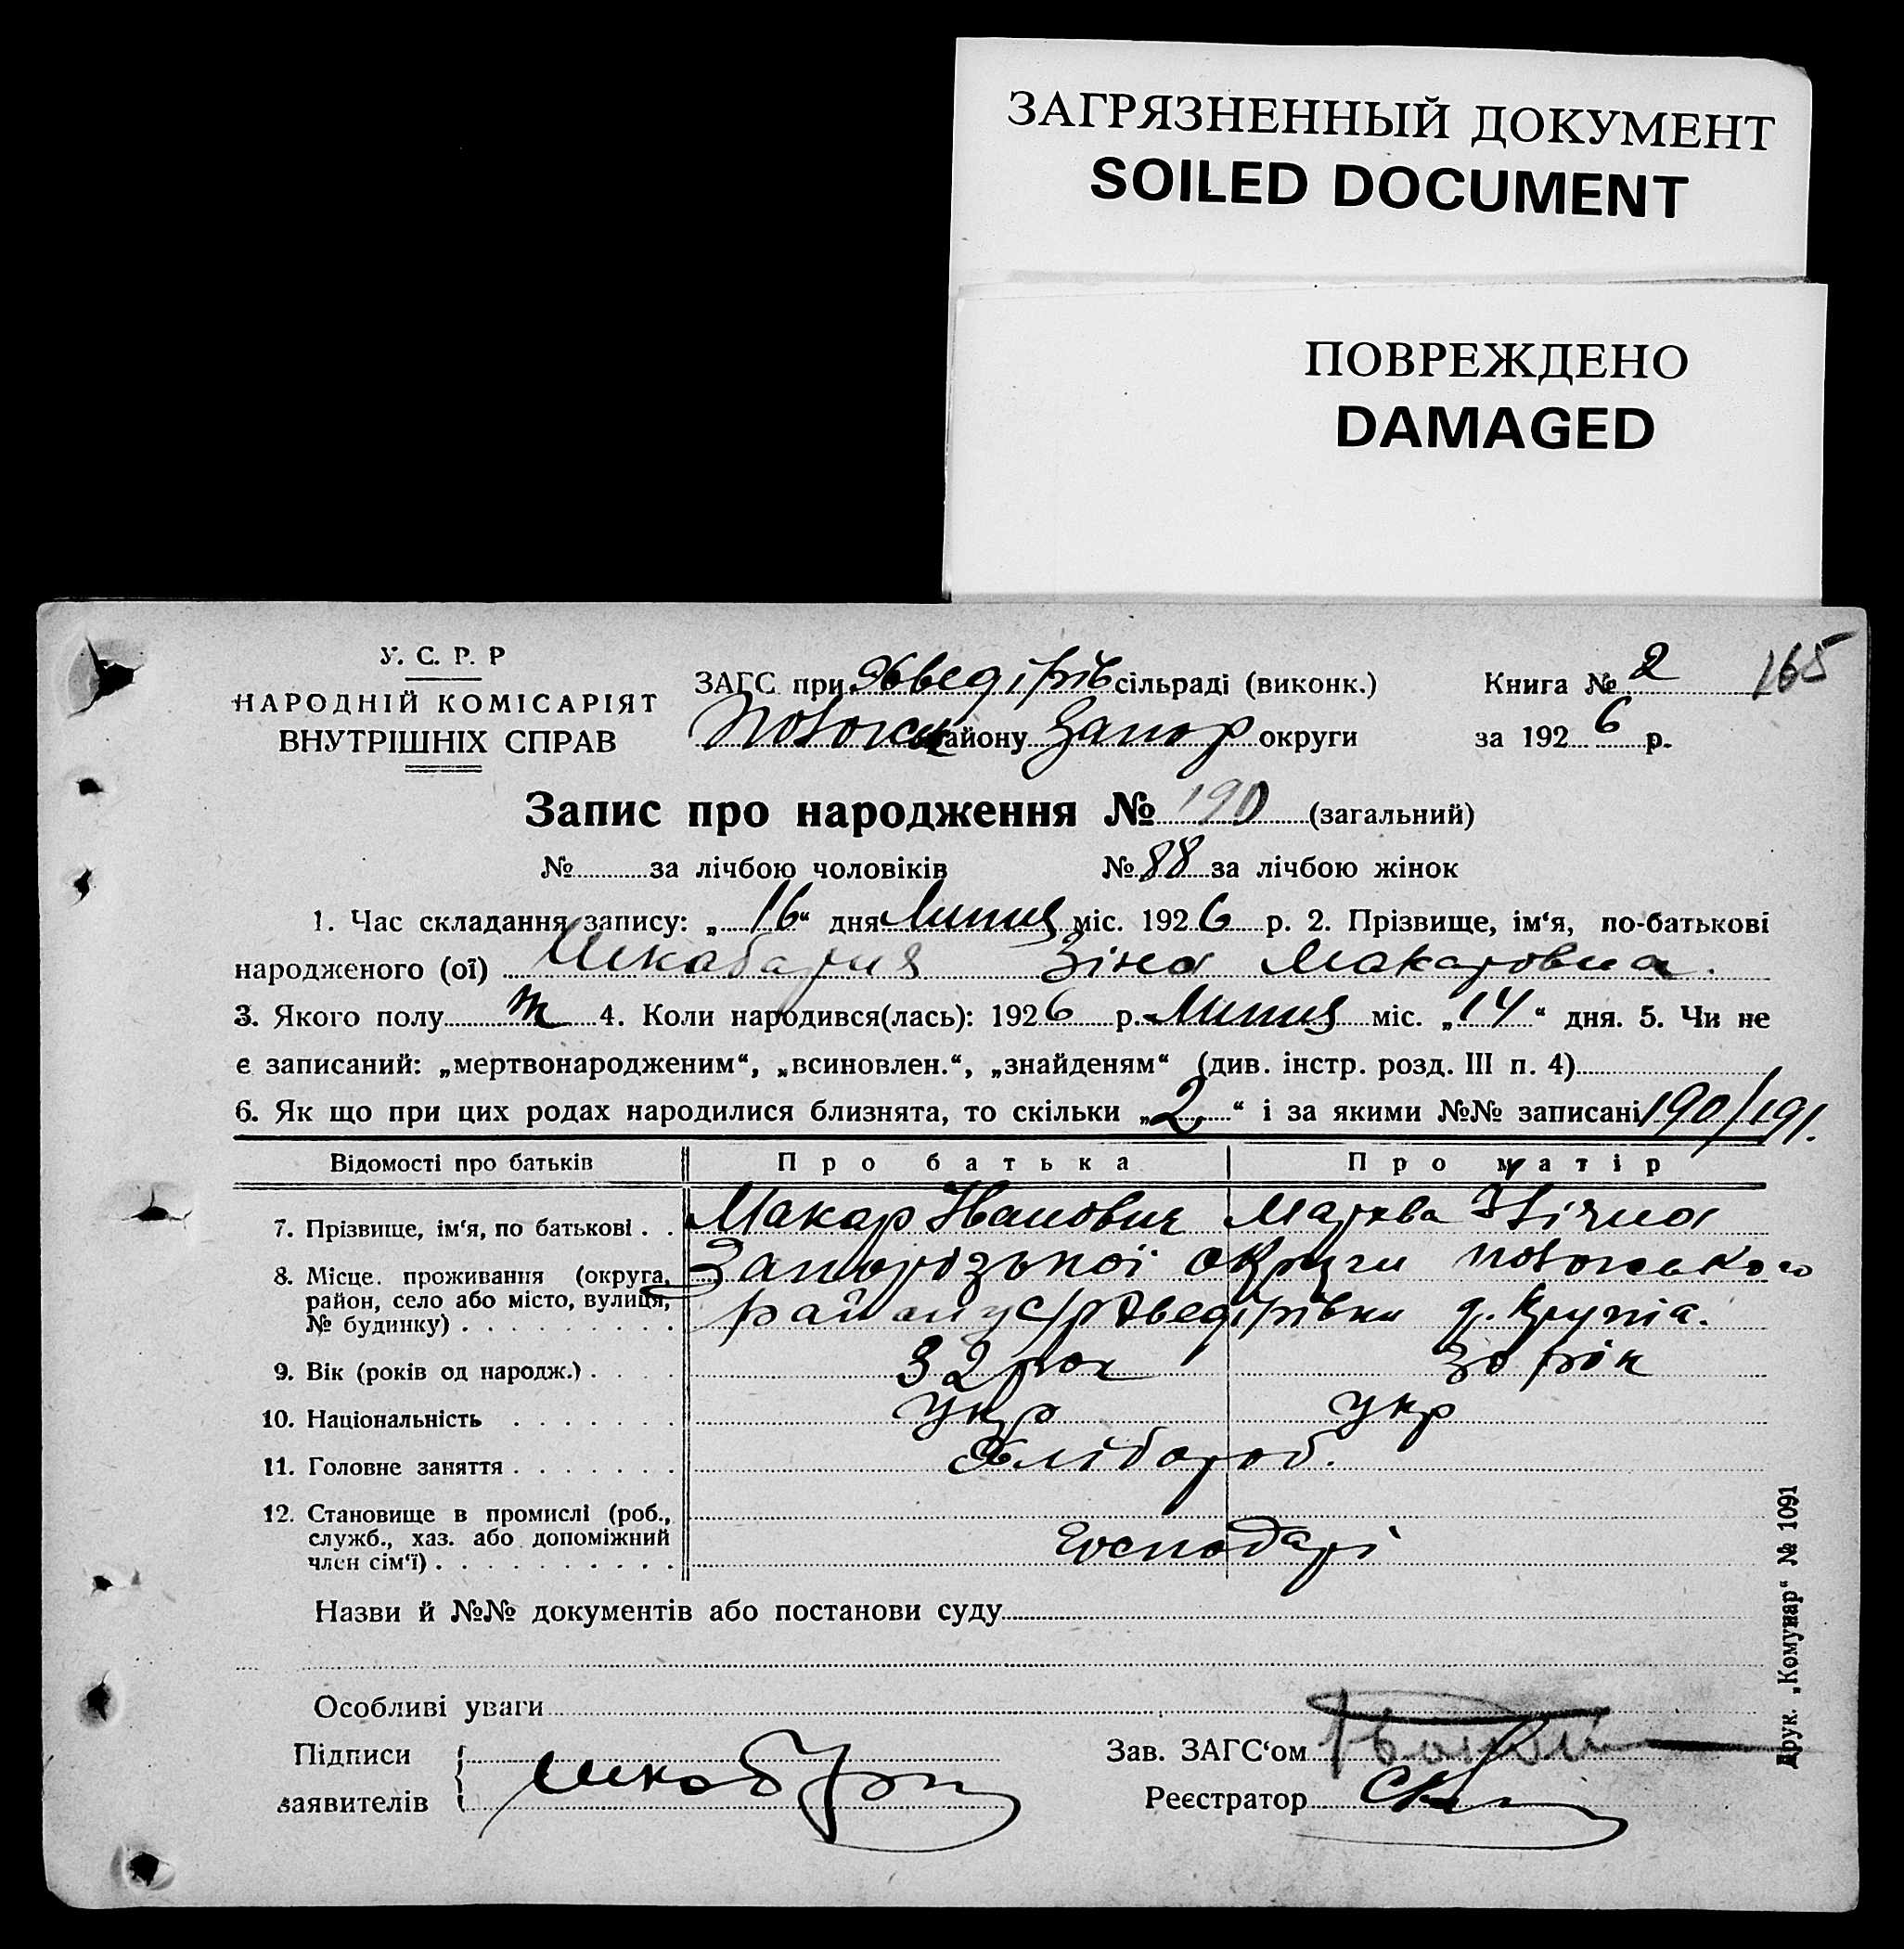 ЗАГРЯЗНЕННЫЙ ДОКУМЕНТ
SOILED DOCUMENT
ПОВРЕЖДЕНО
DAMAGED
165
У. С. Р. Р
НАРОДНІЙ КОМІСАРІЯТ
ВНУТРІШНІХ СПРАВ
ЗАГС при сільраді (виконк.)
району Запор округи
Книга № 2
за 1926 р.
Запис про народження № 190 (загальний)
№ за лічбою чоловіків № 88 за лічбою жінок
1. Час складання запису: „16“ дня Липня міс. 1926 р. 2. Прізвище, ім‘я, по-батькові
народженого (ої) Зіна Макаровна.
3. Якого полу ж 4. Коли народився(лась): 1926 р. Липня міс. „14“ дня. 5. Чи не
є записаний: „мертвонародженим“, „всиновлен.“, „знайденям“ (див. інстр. розд. III п. 4)
6. Як що при цих родах народилися близнята, то скільки „2“ і за якими №№ записані 190/191.
Відомості про батьків Про батька Про матір
7. Прізвище, ім‘я, по батькові . . Макар Іванович
8. Місце проживання (округа, Запорізької округи
район, село або місто, вулиця, району с/р
№ будинку)
9. Вік (років од народж.) 32 рок 30 рік
10. Національність укр укр
11. Головне заняття Хлібороб.
12. Становище в промислі (роб.,
служб., хаз. або допоміжний Господарі
член сім‘ї)
Назви й №№ документів або постанови суду
Особливі уваги
Підписи
заявителів
Зав. ЗАГС‘ом
Реєстратор
Друк. „Комунар“ № 1091